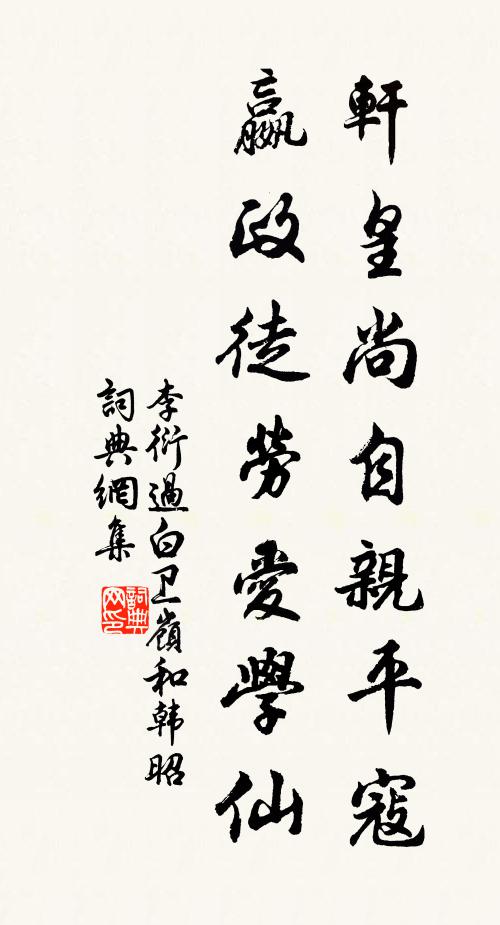 軒皇尚自親平寇
嬴政徒勞愛學仙
李衍過白卫嶺和韩昭
詞典網集
詞典
网印